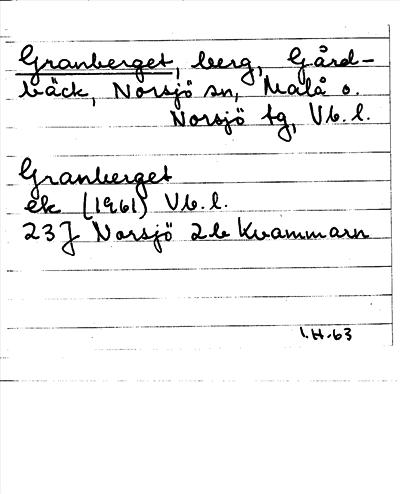 Granberget, berg, Gård-
bäck, Norsjö sn, Malå o.
Norsjö tg, Vb. l.
Granberget
ek (1961) Vb. l.
23J Norsjö 2b Kvammarn
I.H-63